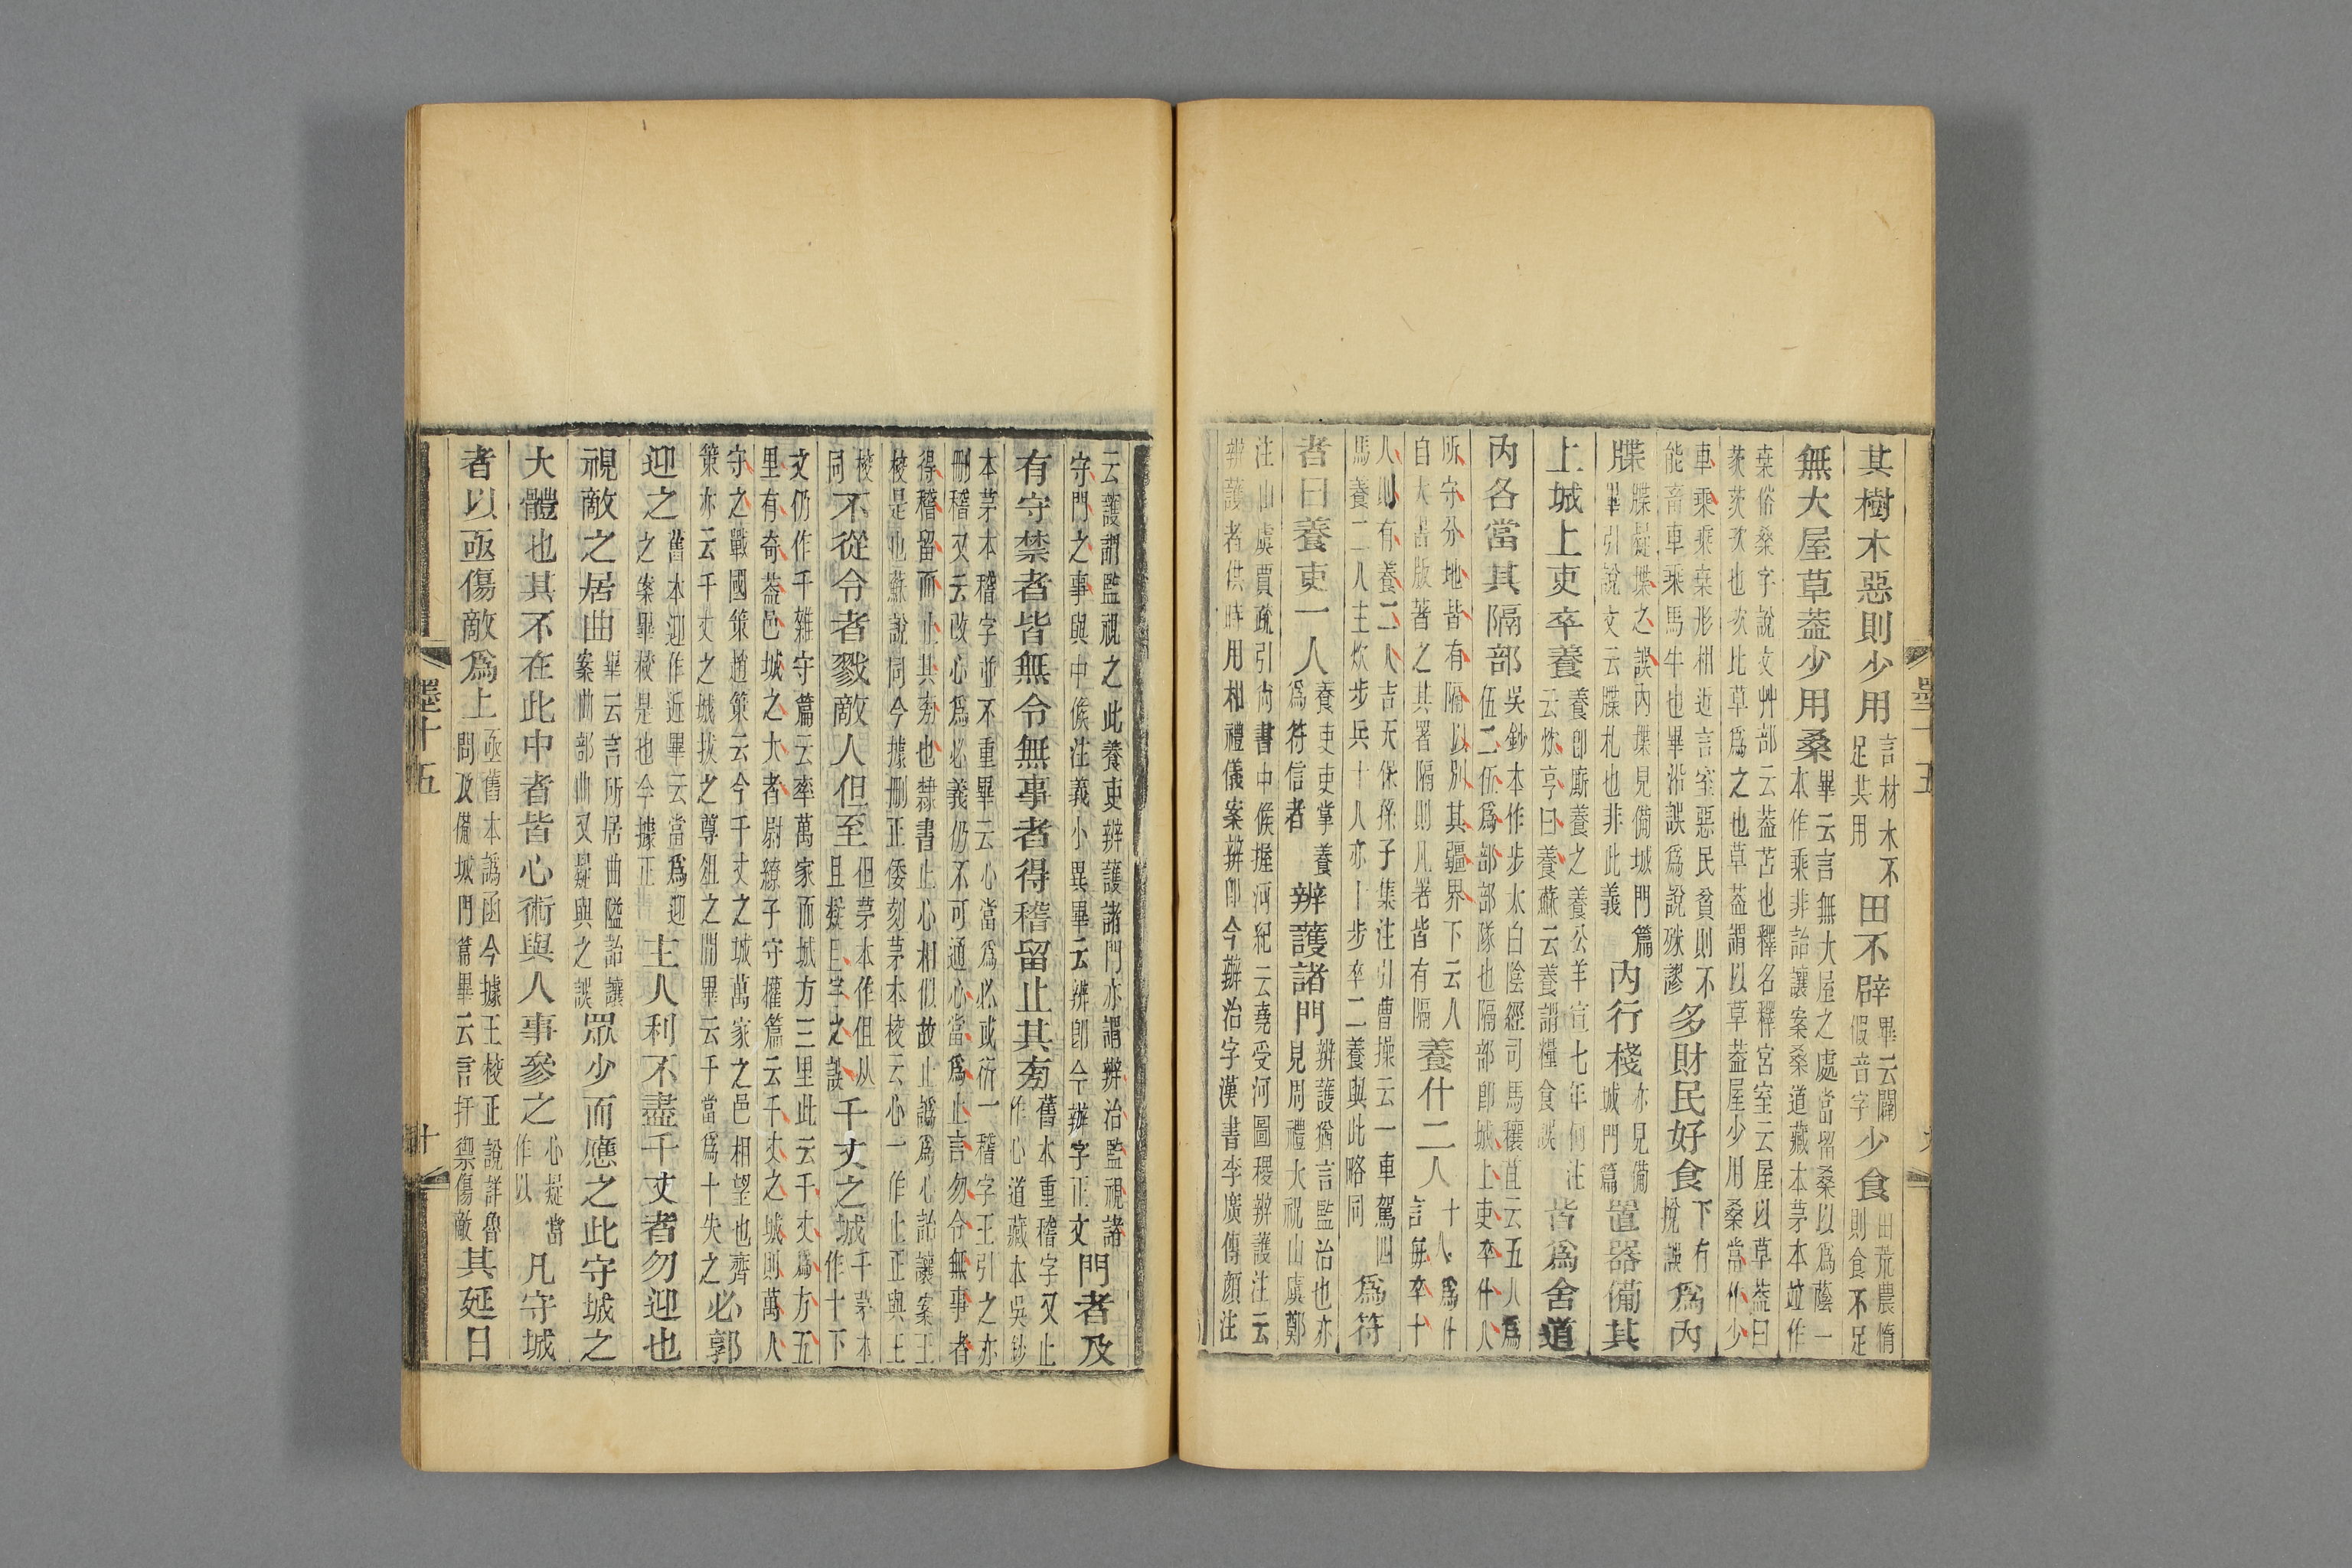 其樹木惡則少用言材木不足其用田不辟畢云闢假音字少食田荒農惰則食不足
無大屋草葢少用桑畢云言無大屋之處當留桑以爲蔭一本作乘非詒讓案桑道藏本茅本竝作
桒俗桑字說文艸部云葢苫也釋名釋宮室云屋以草葢曰茨茨次也次比草爲之也草葢謂以草葢屋少用桑當作少
車乘乘桒形相近言室惡民貧則不能畜車乘馬牛也畢沿誤爲說殊謬多財民好食下有挩誤爲內
牒牒疑堞之誤內堞見備城門篇畢引說文云牒札也非此義內行棧亦見備城門篇置器備其
上城上吏卒養養卽廝養之養公羊宣七年何注云炊亨曰養蘇云養謂糧食誤皆爲舍道
內各當其隔部吳鈔本作步太白陰經司馬穰苴云五人爲伍二伍爲部部隊也隔部卽城上吏卒什人
所守分地皆有隔以別其疆界下云人自大書版著之其署隔則凡署皆有隔養什二人十人爲什言每卒十
人則有養二人吉天保孫子集注引曹操云一車駕四馬養二人主炊步兵十人亦十步卒二養與此略同爲符
者曰養吏一人養吏吏掌養爲符信者辨護諸門辨護猶言監治也亦見周禮大祝山虞鄭
注山虞賈疏引尙書中候握河紀云堯受河圖稷辨護注云辨護者供時用相禮儀案辨卽今辦治字漢書李廣傳顏注
云護謂監視之此養吏辨護諸門亦謂辨治監視諸守門之事與中候注義小異畢云辨卽今辦字正文門者及
有守禁者皆無令無事者得稽留止其㫄舊本重稽字又止作心道藏本吳鈔
本茅本稽字並不重畢云心當爲必或衍一稽字王引之亦刪稽又云改心爲必義仍不可通心當爲止言勿令無事者
得稽留而止其㫄也隸書止心相似故止譌爲心詒讓案王校是也蘇說同今據刪正倭刻茅本校云心一作止正與王
校同不從令者戮敵人但至但茅本作但从且擬且字之誤千丈之城千茅本作十下
文仍作千雜守篇云率萬家而城方三里此云千丈爲方五里有奇葢邑城之大者尉繚子守權篇云千丈之城則萬人
守之戰國策趙策云今千丈之城萬家之邑相望也齊策亦云千丈之城拔之尊俎之閒畢云千當爲十失之必郭
迎之舊本迎作近畢云當爲迎之案畢校是也今據正主人利不盡千丈者勿迎也
視敵之居曲畢云言所居曲隘詒讓案曲部曲又疑與之誤眾少而應之此守城之
大體也其不在此中者皆心術與人事參之心疑當作以凡守城
者以亟傷敵爲上亟舊本譌函今據王校正說詳魯問及備城門篇畢云言扞禦傷敵其延日
墨十五
十